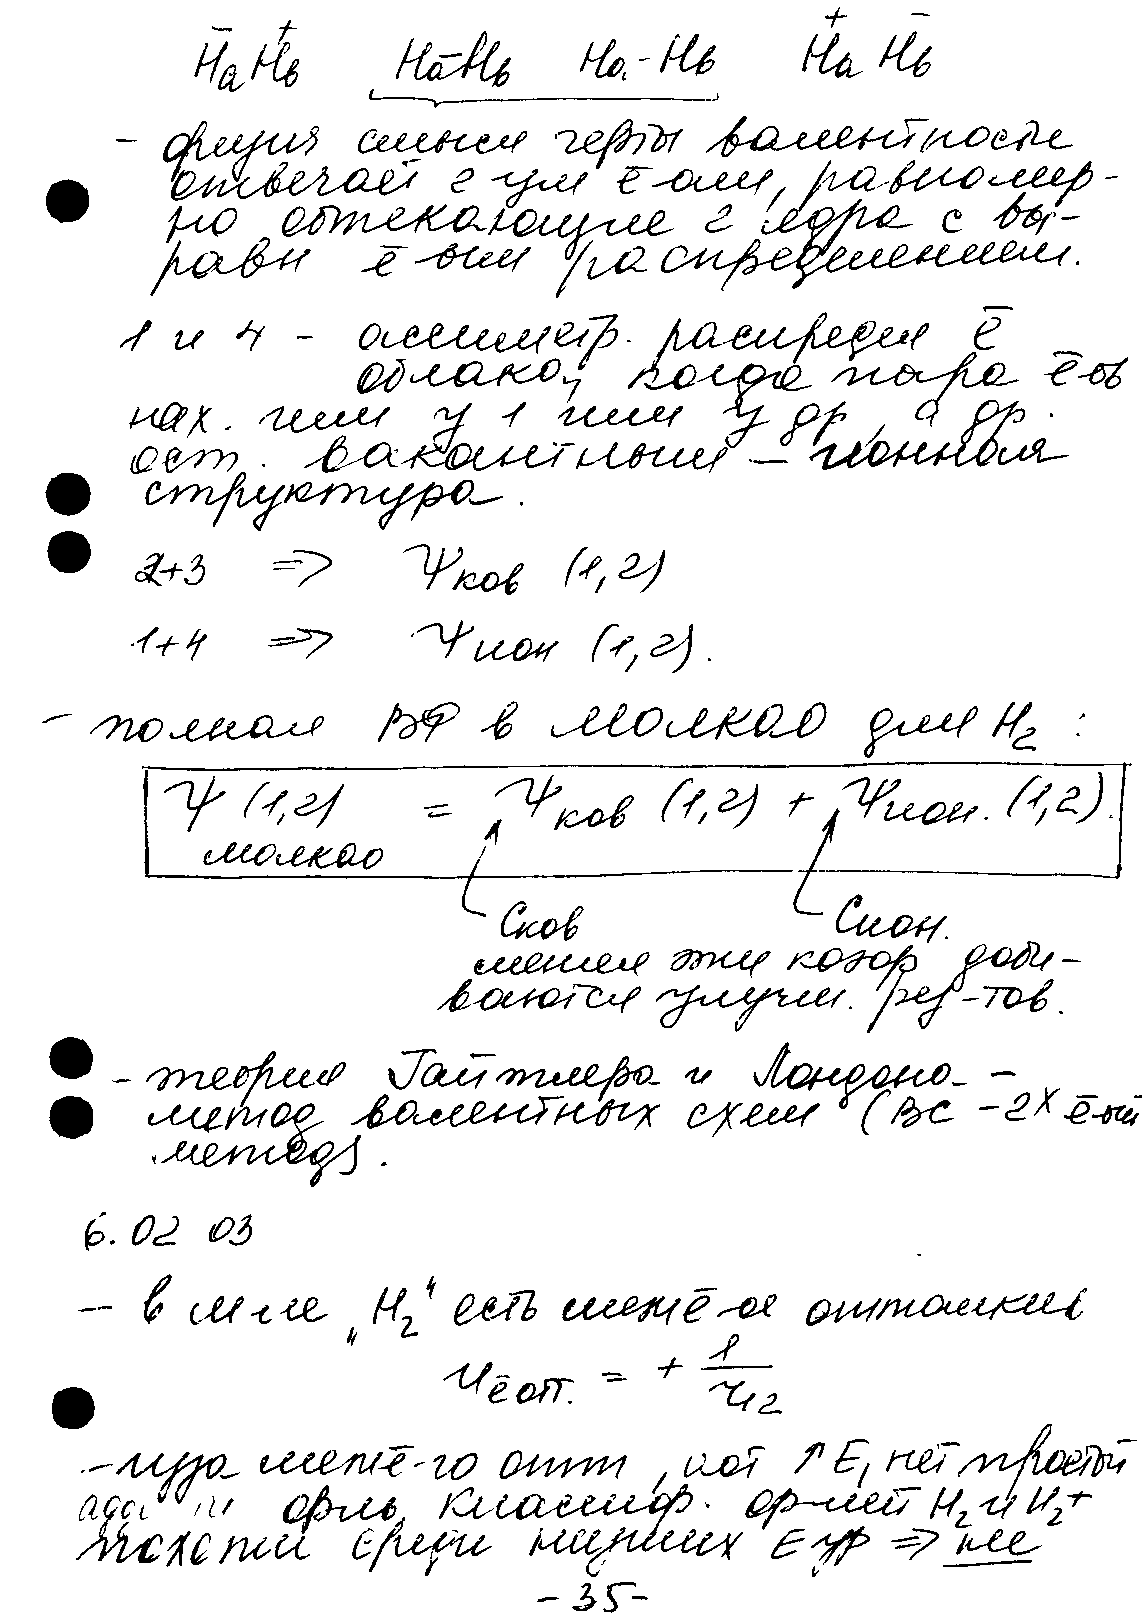 H̄a H⁺в Hа–Hв Hа–Hв H⁺a H̄в
– физич смысл черты валентности
отвечает 2 ум ē ами, равномер-
но обтекающие 2 ядра с вы-
равн ē-ным распределением.
1 и 4 – асимметр. распредел ē
облако, когда пара ē-ов
нах. или у 1 или у др, а др.
ост. вакантным – ионная
структура.
2+3 => Ψков (1,2)
1+4 => Ψион (1,2).
– полная ВФ в молкао для H₂ :
Ψ (1,2) = Ψков (1,2) + Ψион. (1,2).
молкао
Сков Сион.
меняя эти коэф доби-
ваются улучш. рез-тов.
– теория Гайтлера и Лондона –
метод валентных схем (ВС – 2х ē-ый
метод).
6.02 03
– в м-ле „H₂“ есть меж ē-ое отталкив
Uē от. = + 1/r₁₂
– из-за меж ē-го отт, кот ↑ E, нет простой
ф-лы, классиф. ф-лей H₂ и H₂⁺
похожи среди низших E ур => нее
– 35 –